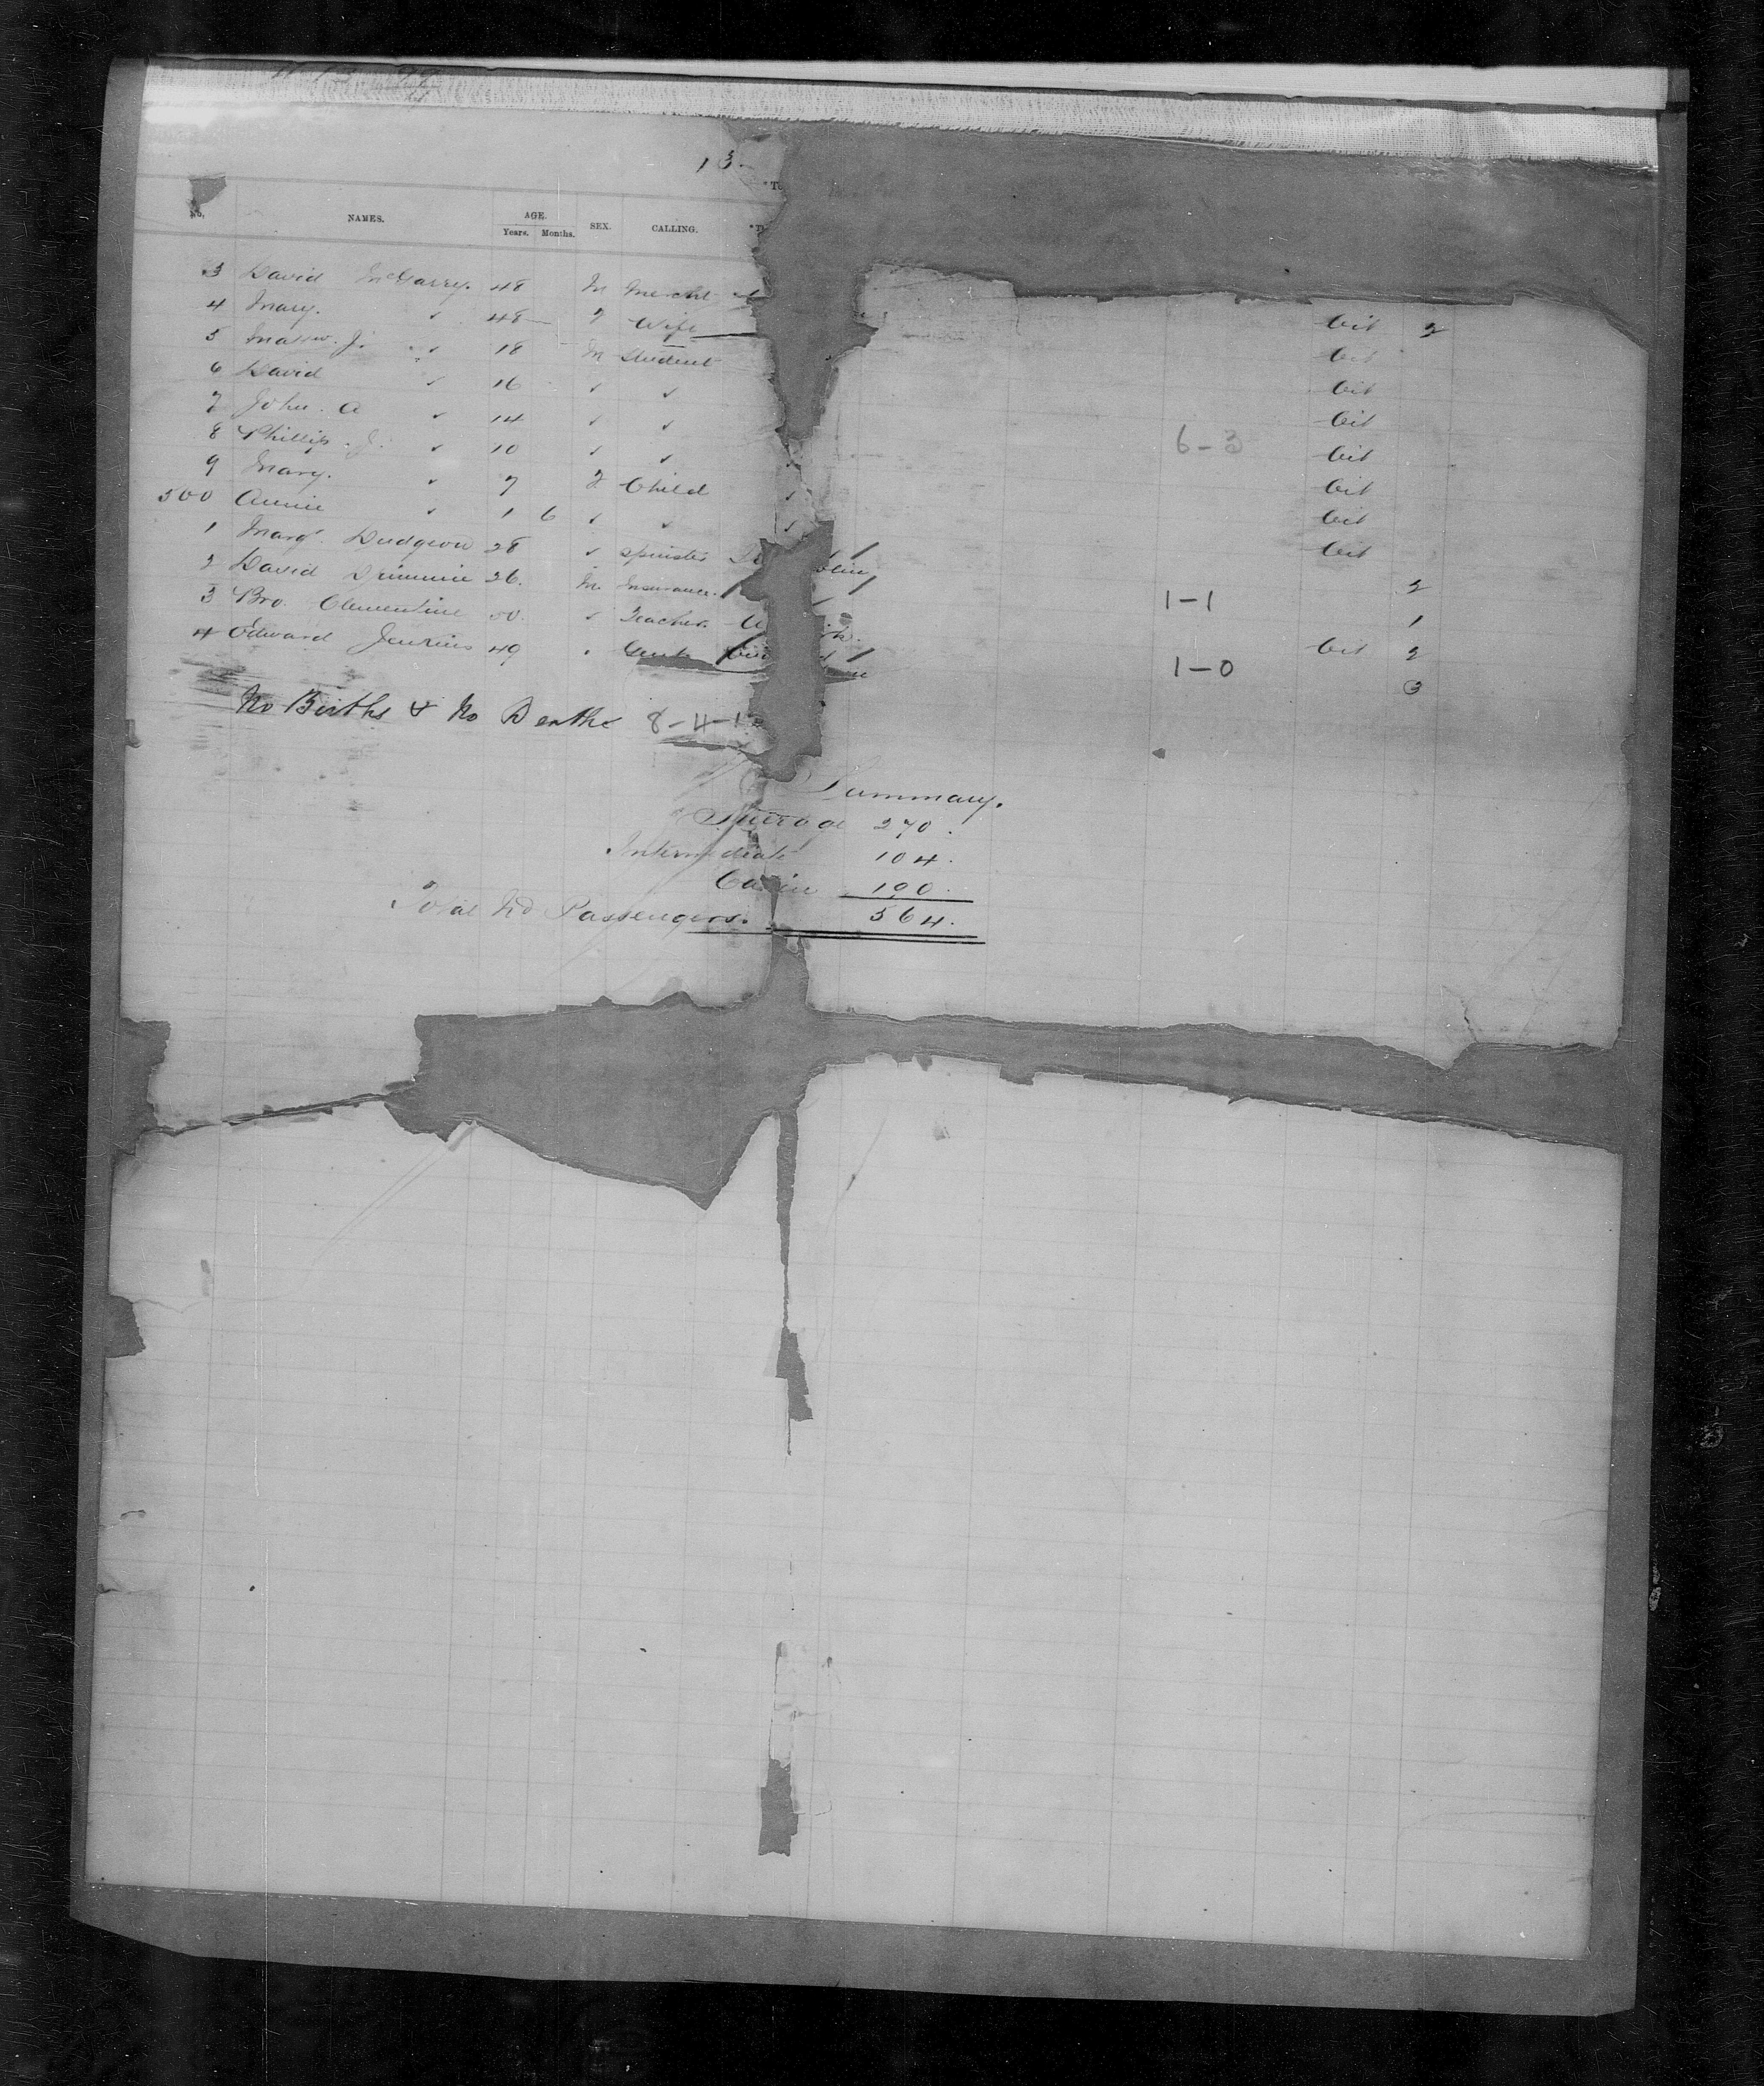 13
No. NAMES. AGE. Years. Months. SEX. CALLING.
3 David McGarry. 48 M Mercht
4 Mary. " 48 F Wife Cit 2
5 J. " 18 M Student Cit
6 David " 16 " " Cit
7 John. A " 14 " " Cit
8 Phillip. J. " 10 " " 6-3 Cit
9 Mary. " 7 F Child " Cit
500 Annie " 1 6 " " " Cit
1 Margt. Dudgeon 28 " Spinster Cit
2 David Drimmie 26. M Insurance. 1-1 2
3 Bro. Clementine 50. " Teacher. 1
4 Edward Jenkins 49 " Gent 1-0 Cit 2
3
No Births & No Deaths 8-4-1
Summary.
Steerage 270.
Intermediate 104.
Cabin 190.
Total No Passengers. 564.